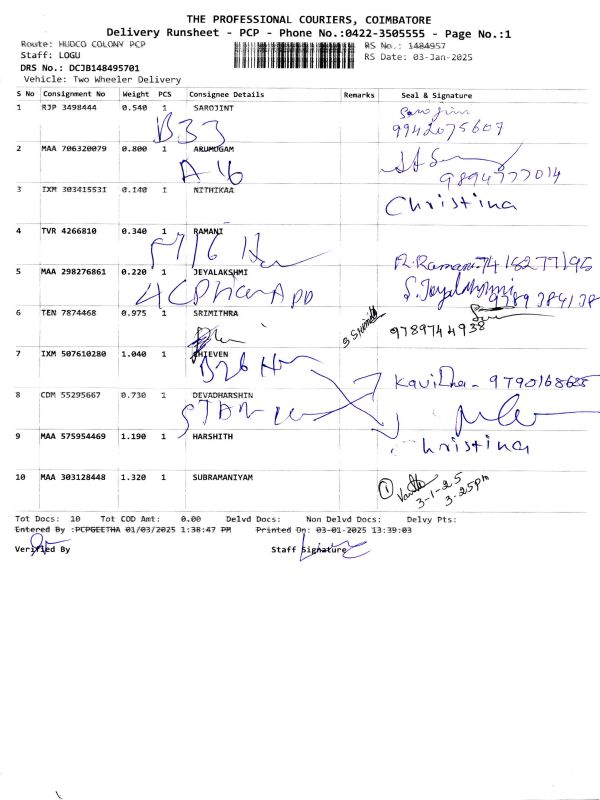 THE PROFESSIONAL COURIERS, COIMBATORE
Delivery Runsheet - PCP - Phone No.:0422-3505555 - Page No.:1
Route: HUDCO COLONY PCP
RS No.: 1484957
Staff: LOGU
RS Date: 03-Jan-2025
DRS No.: DCJB148495701
Vehicle: Two Wheeler Delivery
S No Consignment No Weight PCS Consignee Details Remarks Seal & Signature
1 RJP 3498444 0.540 1 SAROJINT
B33
Sarojini
9942075607
2 MAA 706320079 0.800 1 ARUMUGAM
A 16
9894777014
3 IXM 303415531 0.140 1 NITHIKAA
Christina
4 TVR 4266810 0.340 1 RAMANI
R. Ramani 7418277195
5 MAA 298276861 0.220 1 JEYALAKSHMI
S. Jeyalakshmi
9789384138
6 TEN 7874468 0.975 1 SRIMITHRA
9789744938
7 IXM 507610280 1.040 1 THIEVEN
B26
Kavidha - 9790168625
8 CDM 55295667 0.730 1 DEVADHARSHIN
9 MAA 575954469 1.190 1 HARSHITH
Christina
10 MAA 303128448 1.320 1 SUBRAMANIYAM
1
3-1-25
3.25pm
Tot Docs: 10 Tot COD Amt: 0.00 Delvd Docs: Non Delvd Docs: Delvy Pts:
Entered By :PCPGEETHA 01/03/2025 1:38:47 PM Printed On: 03-01-2025 13:39:03
Verified By Staff Signature